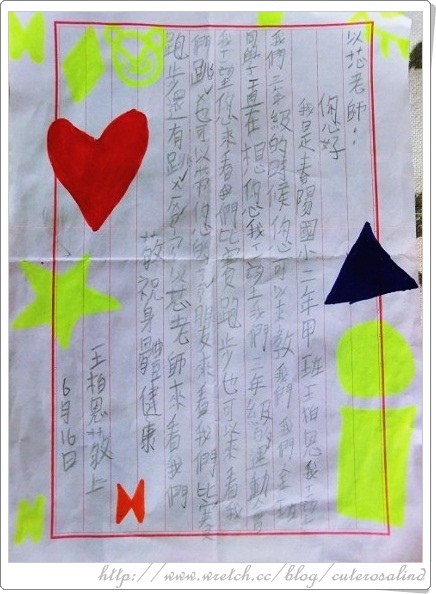 以芯老師：
您好
我是春陽國小二年甲班王柏恩我希望
我們三年級的時候您可以來教我們我們全班
同學一直在想您我希望我們三年級的運動會
我希望您來看我們比賽跑步也可以來看我
們跳也可以帶您的朋友來看我們比賽
跑步還有跳可以老師來看我們
敬祝身體健康
王柏恩敬上
6月16日
http://www.wretch.cc/blog/cuterosalind